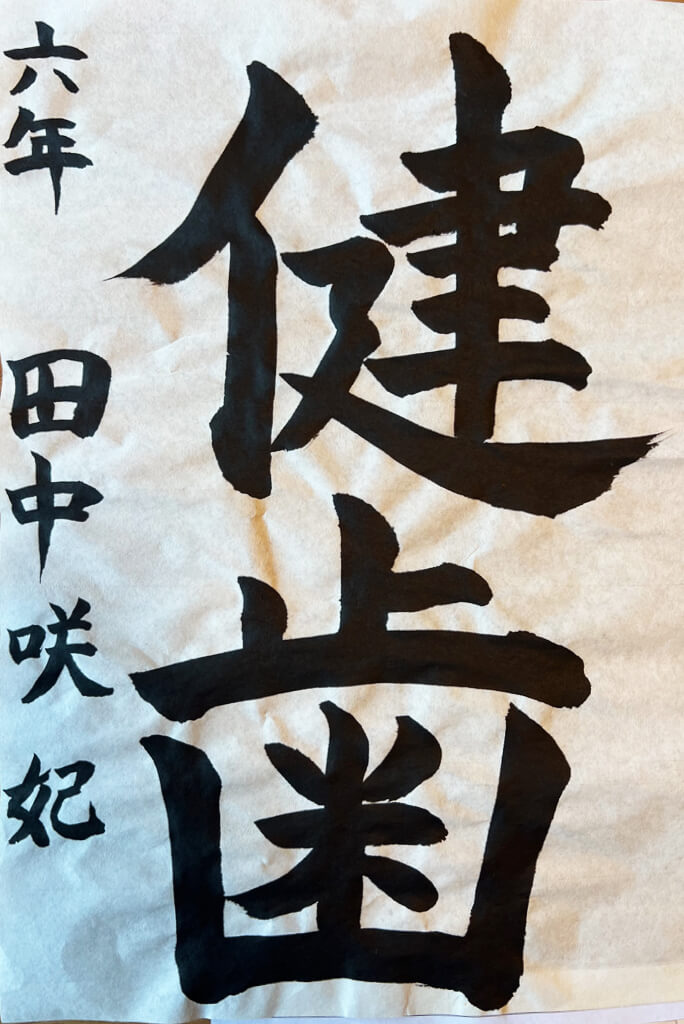 健歯
六年 田中咲妃